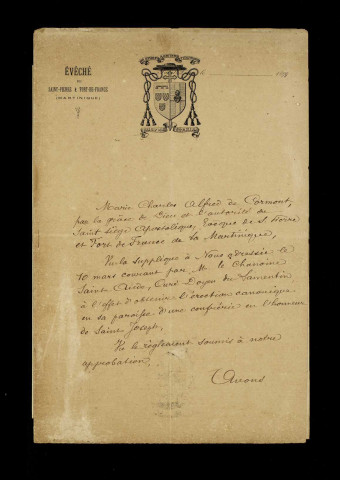 ÉVÊCHÉ
DE
SAINT-PIERRE & FORT-DE-FRANCE
(MARTINIQUE)
Marie Charles Alfred de Cormont,
par la grâce de Dieu et l'autorité du
Saint Siège Apostolique, Evêque de St Pierre
et Fort de France de la Martinique,
Vu la supplique à Nous adressée le
10 mars courant par M. le Chanoine
Sainte Curé Doyen du Lamentin
à l'effet d'obtenir l'érection canonique
en sa paroisse d'une confrérie en l'honneur
de Saint Joseph,
Vu le règlement soumis à notre
approbation,
Avons